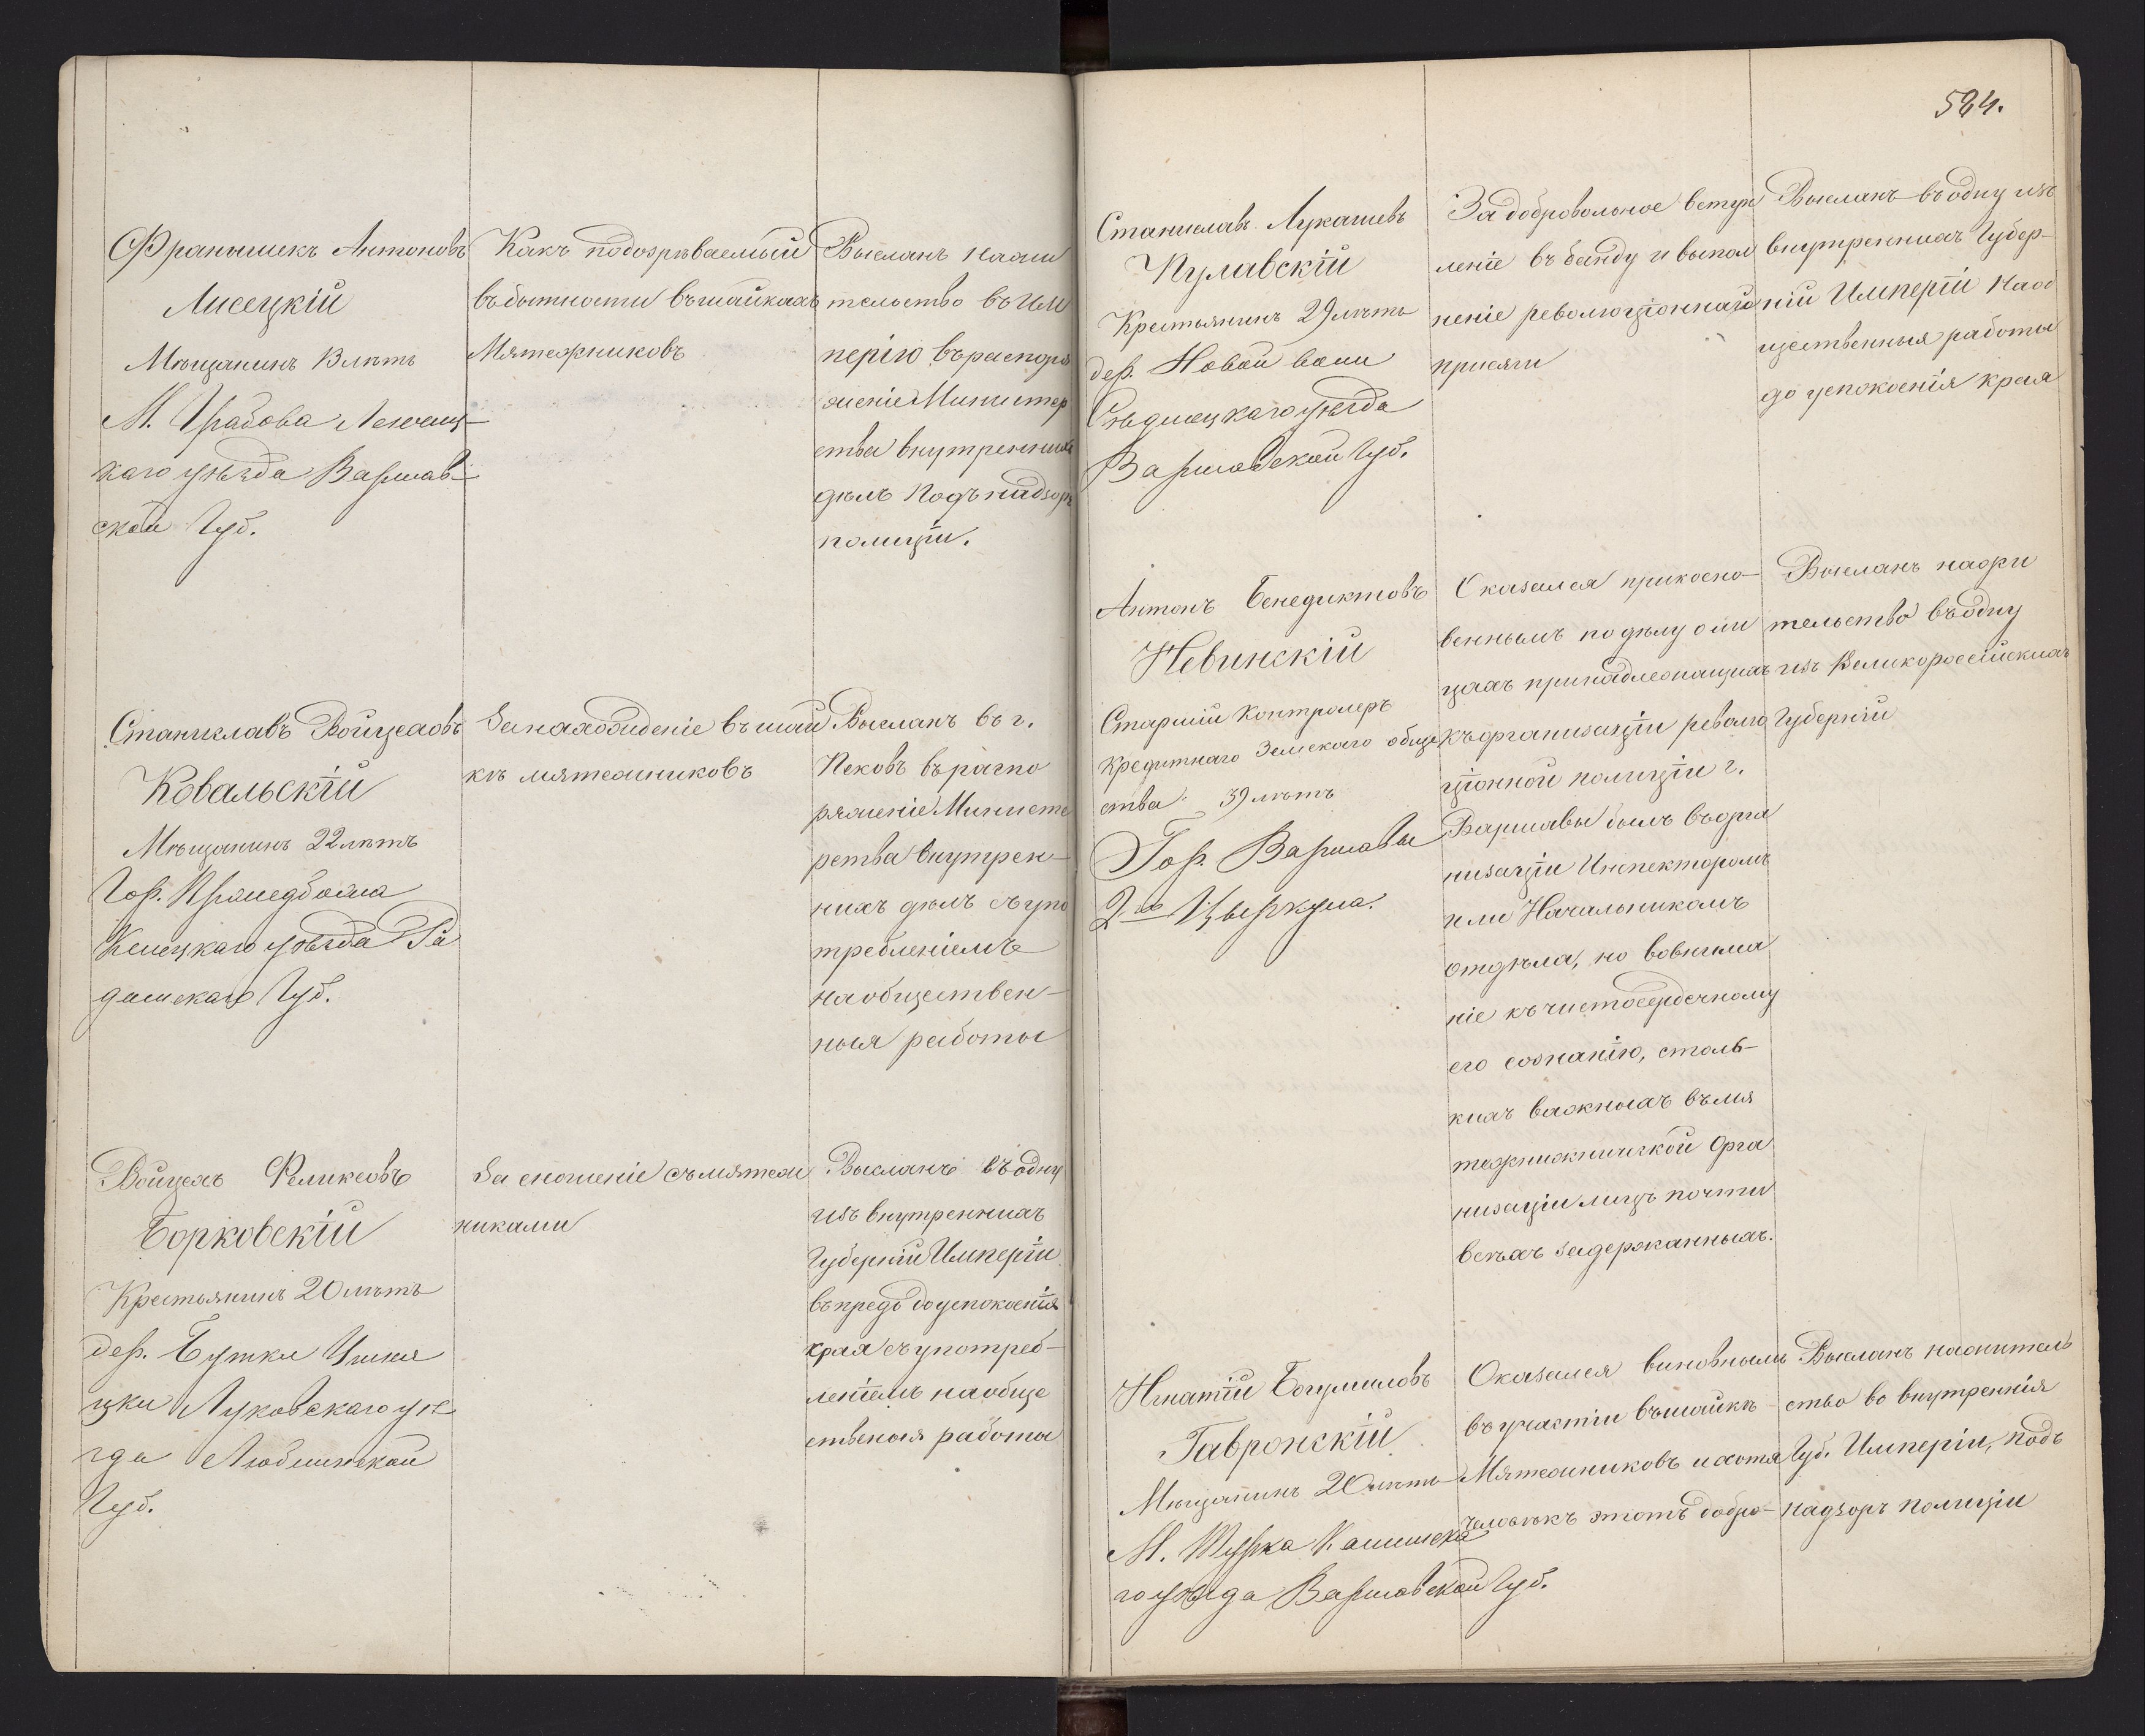 Франышекъ Антоновъ
Лисецкій
Мѣщанинъ 13 лѣтъ
М. Грабова Ленчиц-
каго уѣзда Варшав-
ской Губ.
Какъ подозрѣваемый
въ бытности въ шайкахъ
Мятежниковъ
Высланъ на жи
тельство въ Им
перію въ распоря
женіе Министер
ства внутреннихъ
дѣлъ подъ надзоръ
полиціи.
Станиславъ Войцеховъ
Ковальскій
Мѣщанинъ 22 лѣтъ
Гор.
Келецкаго уѣзда Ра
домскаго Губ.
За нахожденіе въ шай
кѣ мятежниковъ
Высланъ въ г.
Псковъ въ распо
ряженіе Министе
рства внутрен-
нихъ дѣлъ съ упо
требленіемъ
на обществен-
ныя работы
Войцехъ Феликсовъ
Борковскій
Крестьянинъ 20 лѣтъ
дер.
Луковскаго уѣ
зда Люблинской
Губ.
За сношеніе съ мятеж
никами
Высланъ въ одну
изъ внутреннихъ
Губерній Имперіи
впредь до успокоенія
края съ употреб-
леніемъ на обще
ственыя работы
584.
Станиславъ Лукашевъ
Пулавскій
Крестьянинъ 29 лѣтъ
дер. Новой воли
Сѣдлецкаго уѣзда
Варшавской Губ.
За добровольное вступ
леніе въ банду и выпол
неніе революціоннаго
присяги
Высланъ въ одну изъ
внутреннихъ Губер-
ній Имперіи на об
щественныя работы
до успокоенія края
Антонъ Бенедиктовъ
Невинскій
Старшій Контролеръ
Кредитнаго Земскаго обще
ства 39 лѣтъ
Гор. Варшавы
2го Цыркула.
Оказался прикосно-
веннымъ по дѣлу о ли
цахъ принадлежащихъ
къ организаціи револю
ціонной полиціи г.
Варшавы былъ въ орга
низаціи Инспекторомъ
или Начальникомъ
отдѣла, но вовнима
ніе къ чистосердечному
его сознанію, столь-
кихъ важныхъ въ мя
Орга
низаціи лицъ почти
всѣхъ задержанныхъ.
Высланъ на жи
тельство въ одну
изъ Великороссійскихъ
Губерній
Игнатій Богумиловъ
Гавронскій
Мѣщанинъ 20 лѣтъ
М. Шурка
го уѣзда Варшавской Губ.
Оказался виновнымъ
въ участіи въ шайкѣ
Мятежниковъ и хотя
человѣкъ этотъ добро-
Высланъ на житель
ство во внутреннія
Губ. Имперіи, подъ
надзоръ полиціи